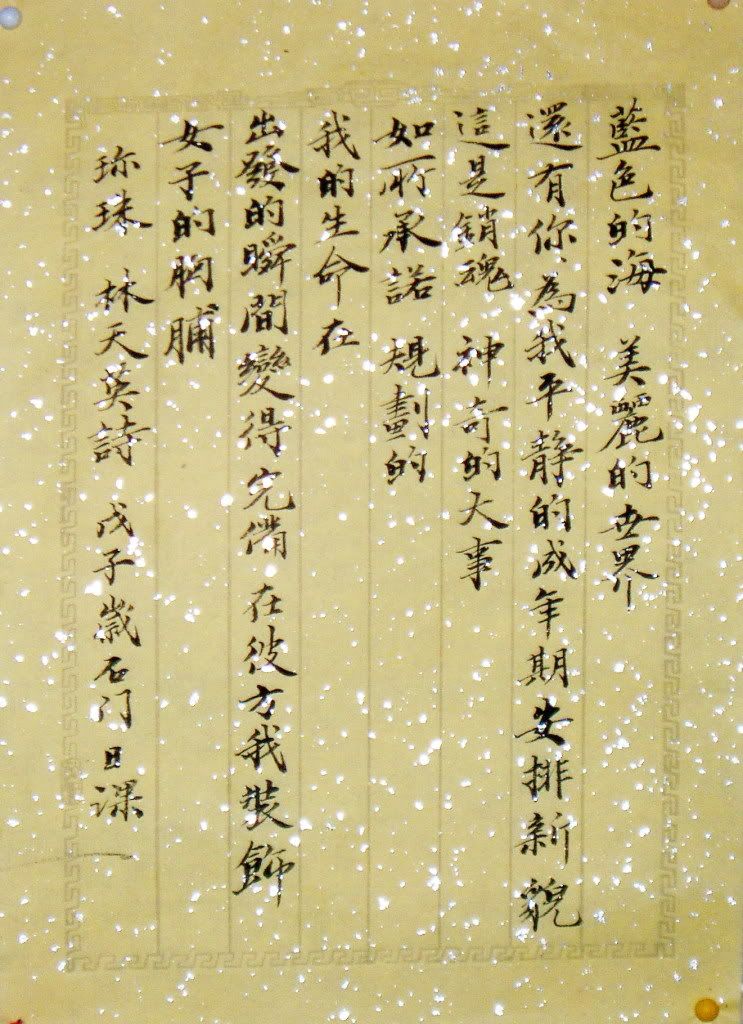 藍色的海 美麗的世界
還有你為我平靜的成年期安排新貌
這是銷魂 神奇的大事
如所承諾 規劃的
我的生命在
出發的瞬間變得完備 在彼方我裝飾
女子的胸脯
珍珠 林天英詩 戊子歲石门日课